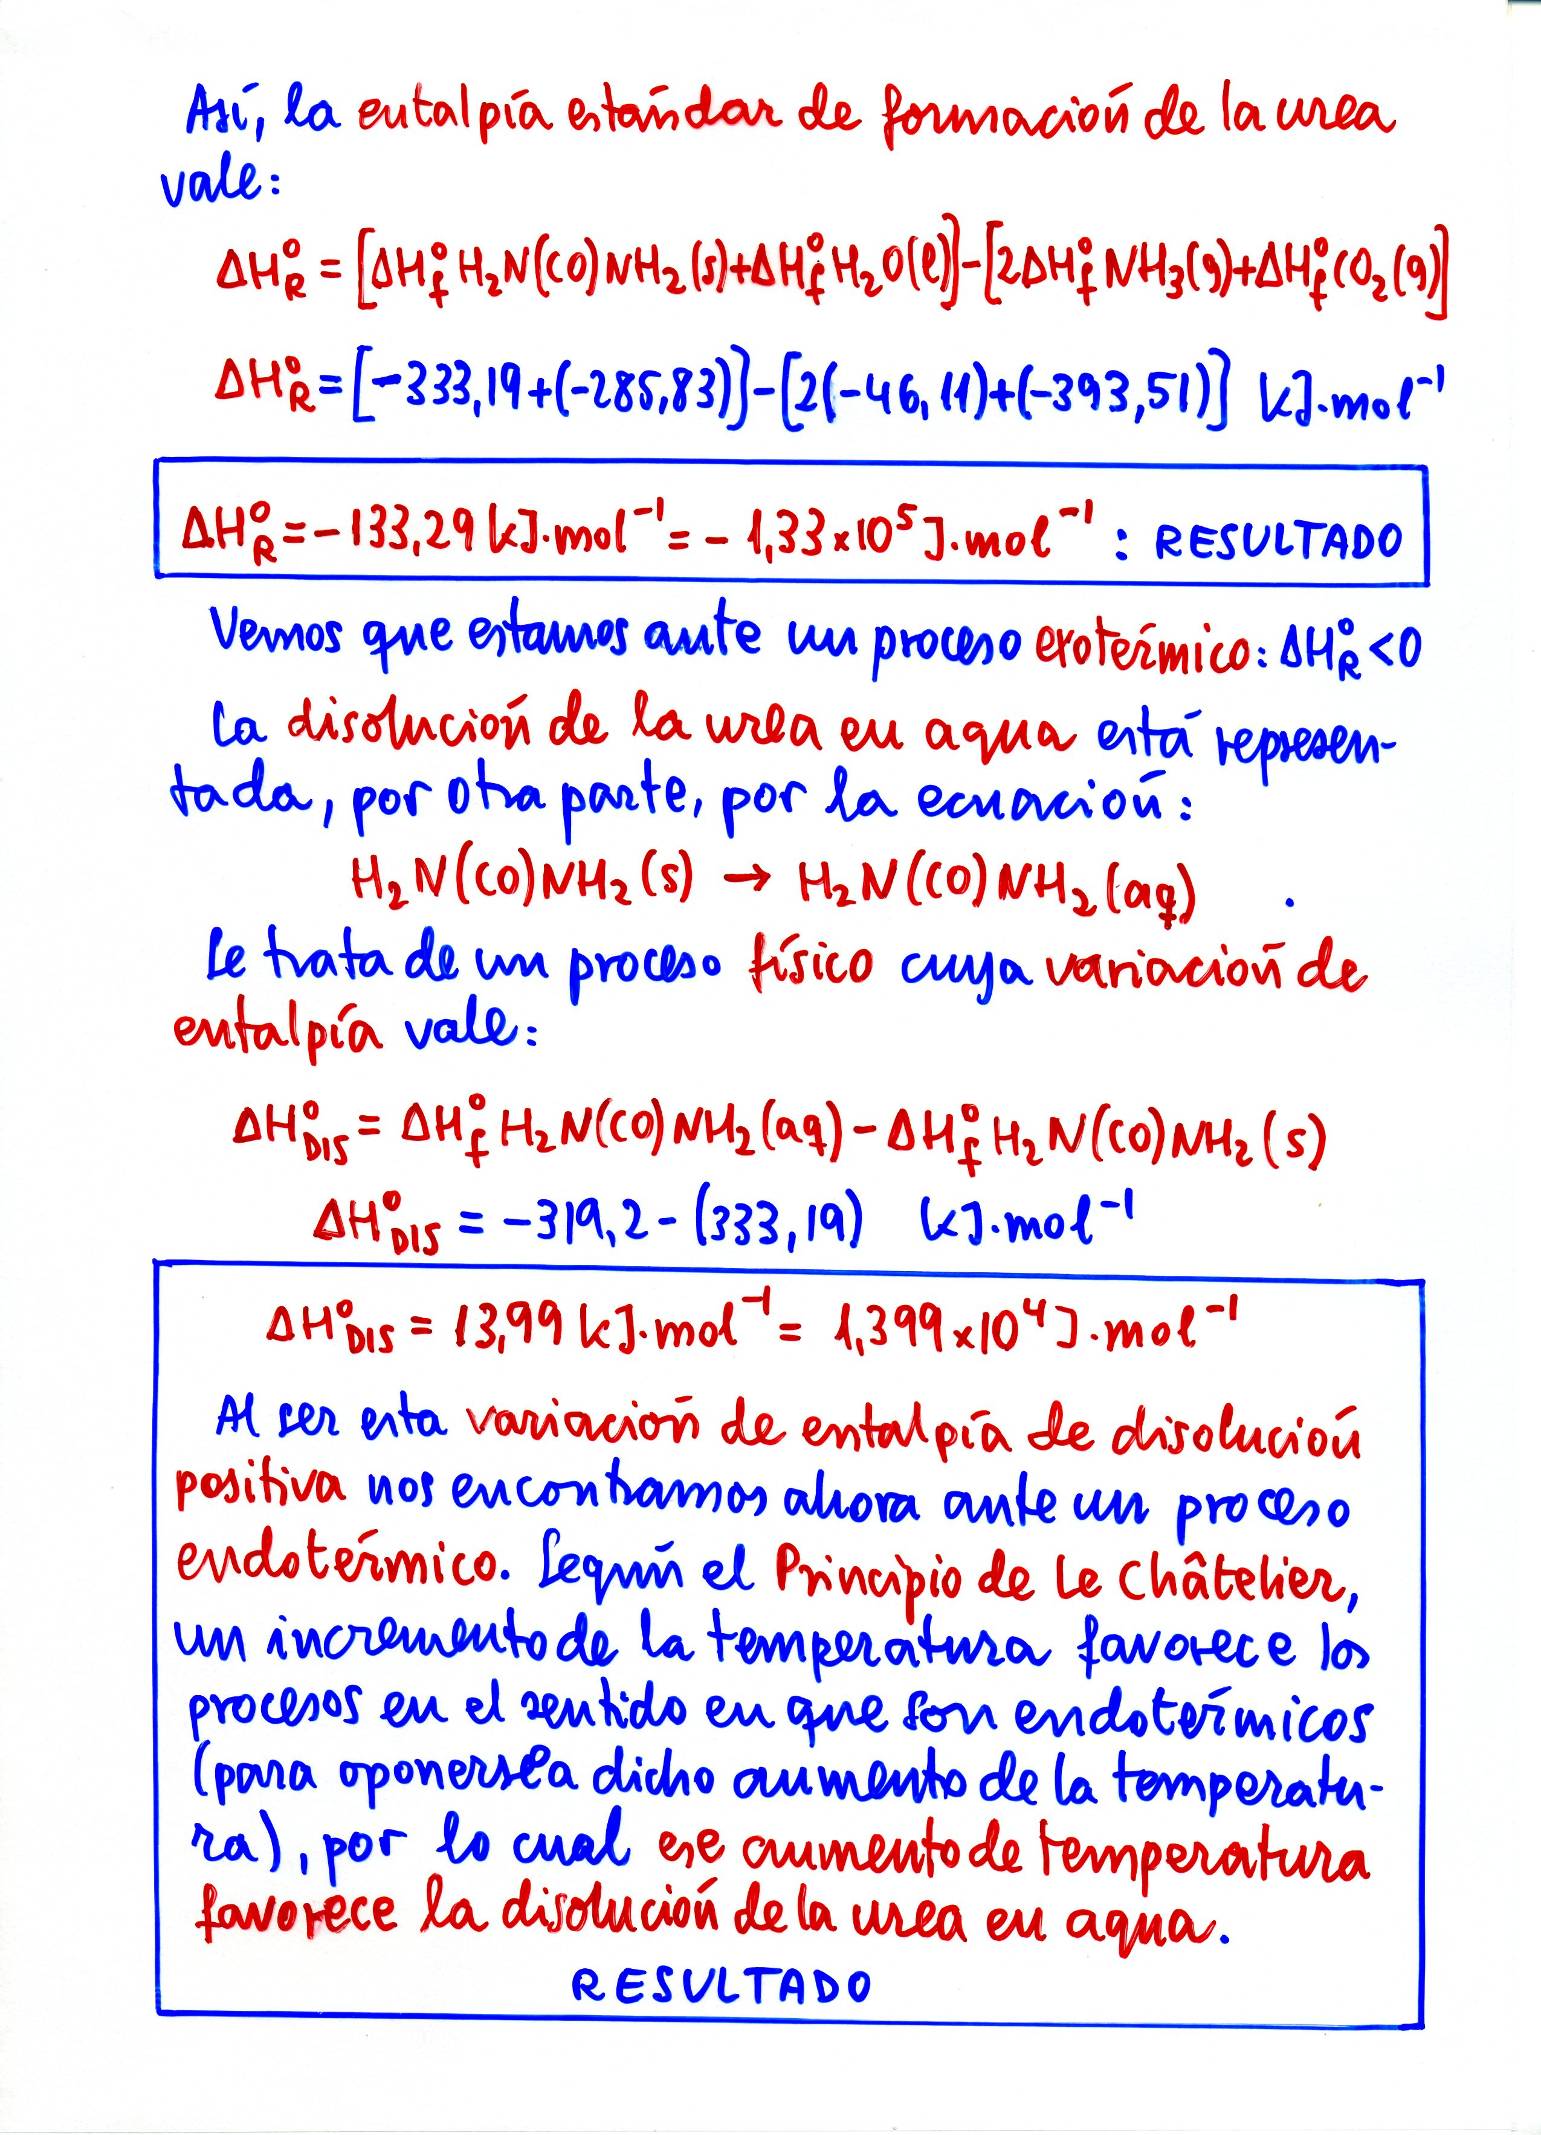 Así, la entalpía estándar de formación de la urea
vale:
ΔH°R = [ΔH°f H₂N(CO)NH₂(s)+ΔH°f H₂O(l)]-[2ΔH°f NH₃(g)+ΔH°f CO₂(g)]
ΔH°R = [-333,19+(-285,83)]-[2(-46,11)+(-393,51)] kJ·mol⁻¹
ΔH°R = -133,29 kJ·mol⁻¹ = -1,33×10⁵ J·mol⁻¹ : RESULTADO
Vemos que estamos ante un proceso exotérmico: ΔH°R <0
La disolución de la urea en agua está represen-
tada, por otra parte, por la ecuación:
H₂N(CO)NH₂(s) → H₂N(CO)NH₂(aq) .
Se trata de un proceso físico cuya variación de
entalpía vale:
ΔH°DIS = ΔH°f H₂N(CO)NH₂(aq) - ΔH°f H₂N(CO)NH₂(s)
ΔH°DIS = -319,2-(333,19) kJ·mol⁻¹
ΔH°DIS = 13,99 kJ·mol⁻¹ = 1,399×10⁴ J·mol⁻¹
Al ser esta variación de entalpía de disolución
positiva nos encontramos ahora ante un proceso
endotérmico. Según el Principio de Le Châtelier,
un incremento de la temperatura favorece los
procesos en el sentido en que son endotérmicos
(para oponerse a dicho aumento de la temperatu-
ra), por lo cual ese aumento de temperatura
favorece la disolución de la urea en agua.
RESULTADO